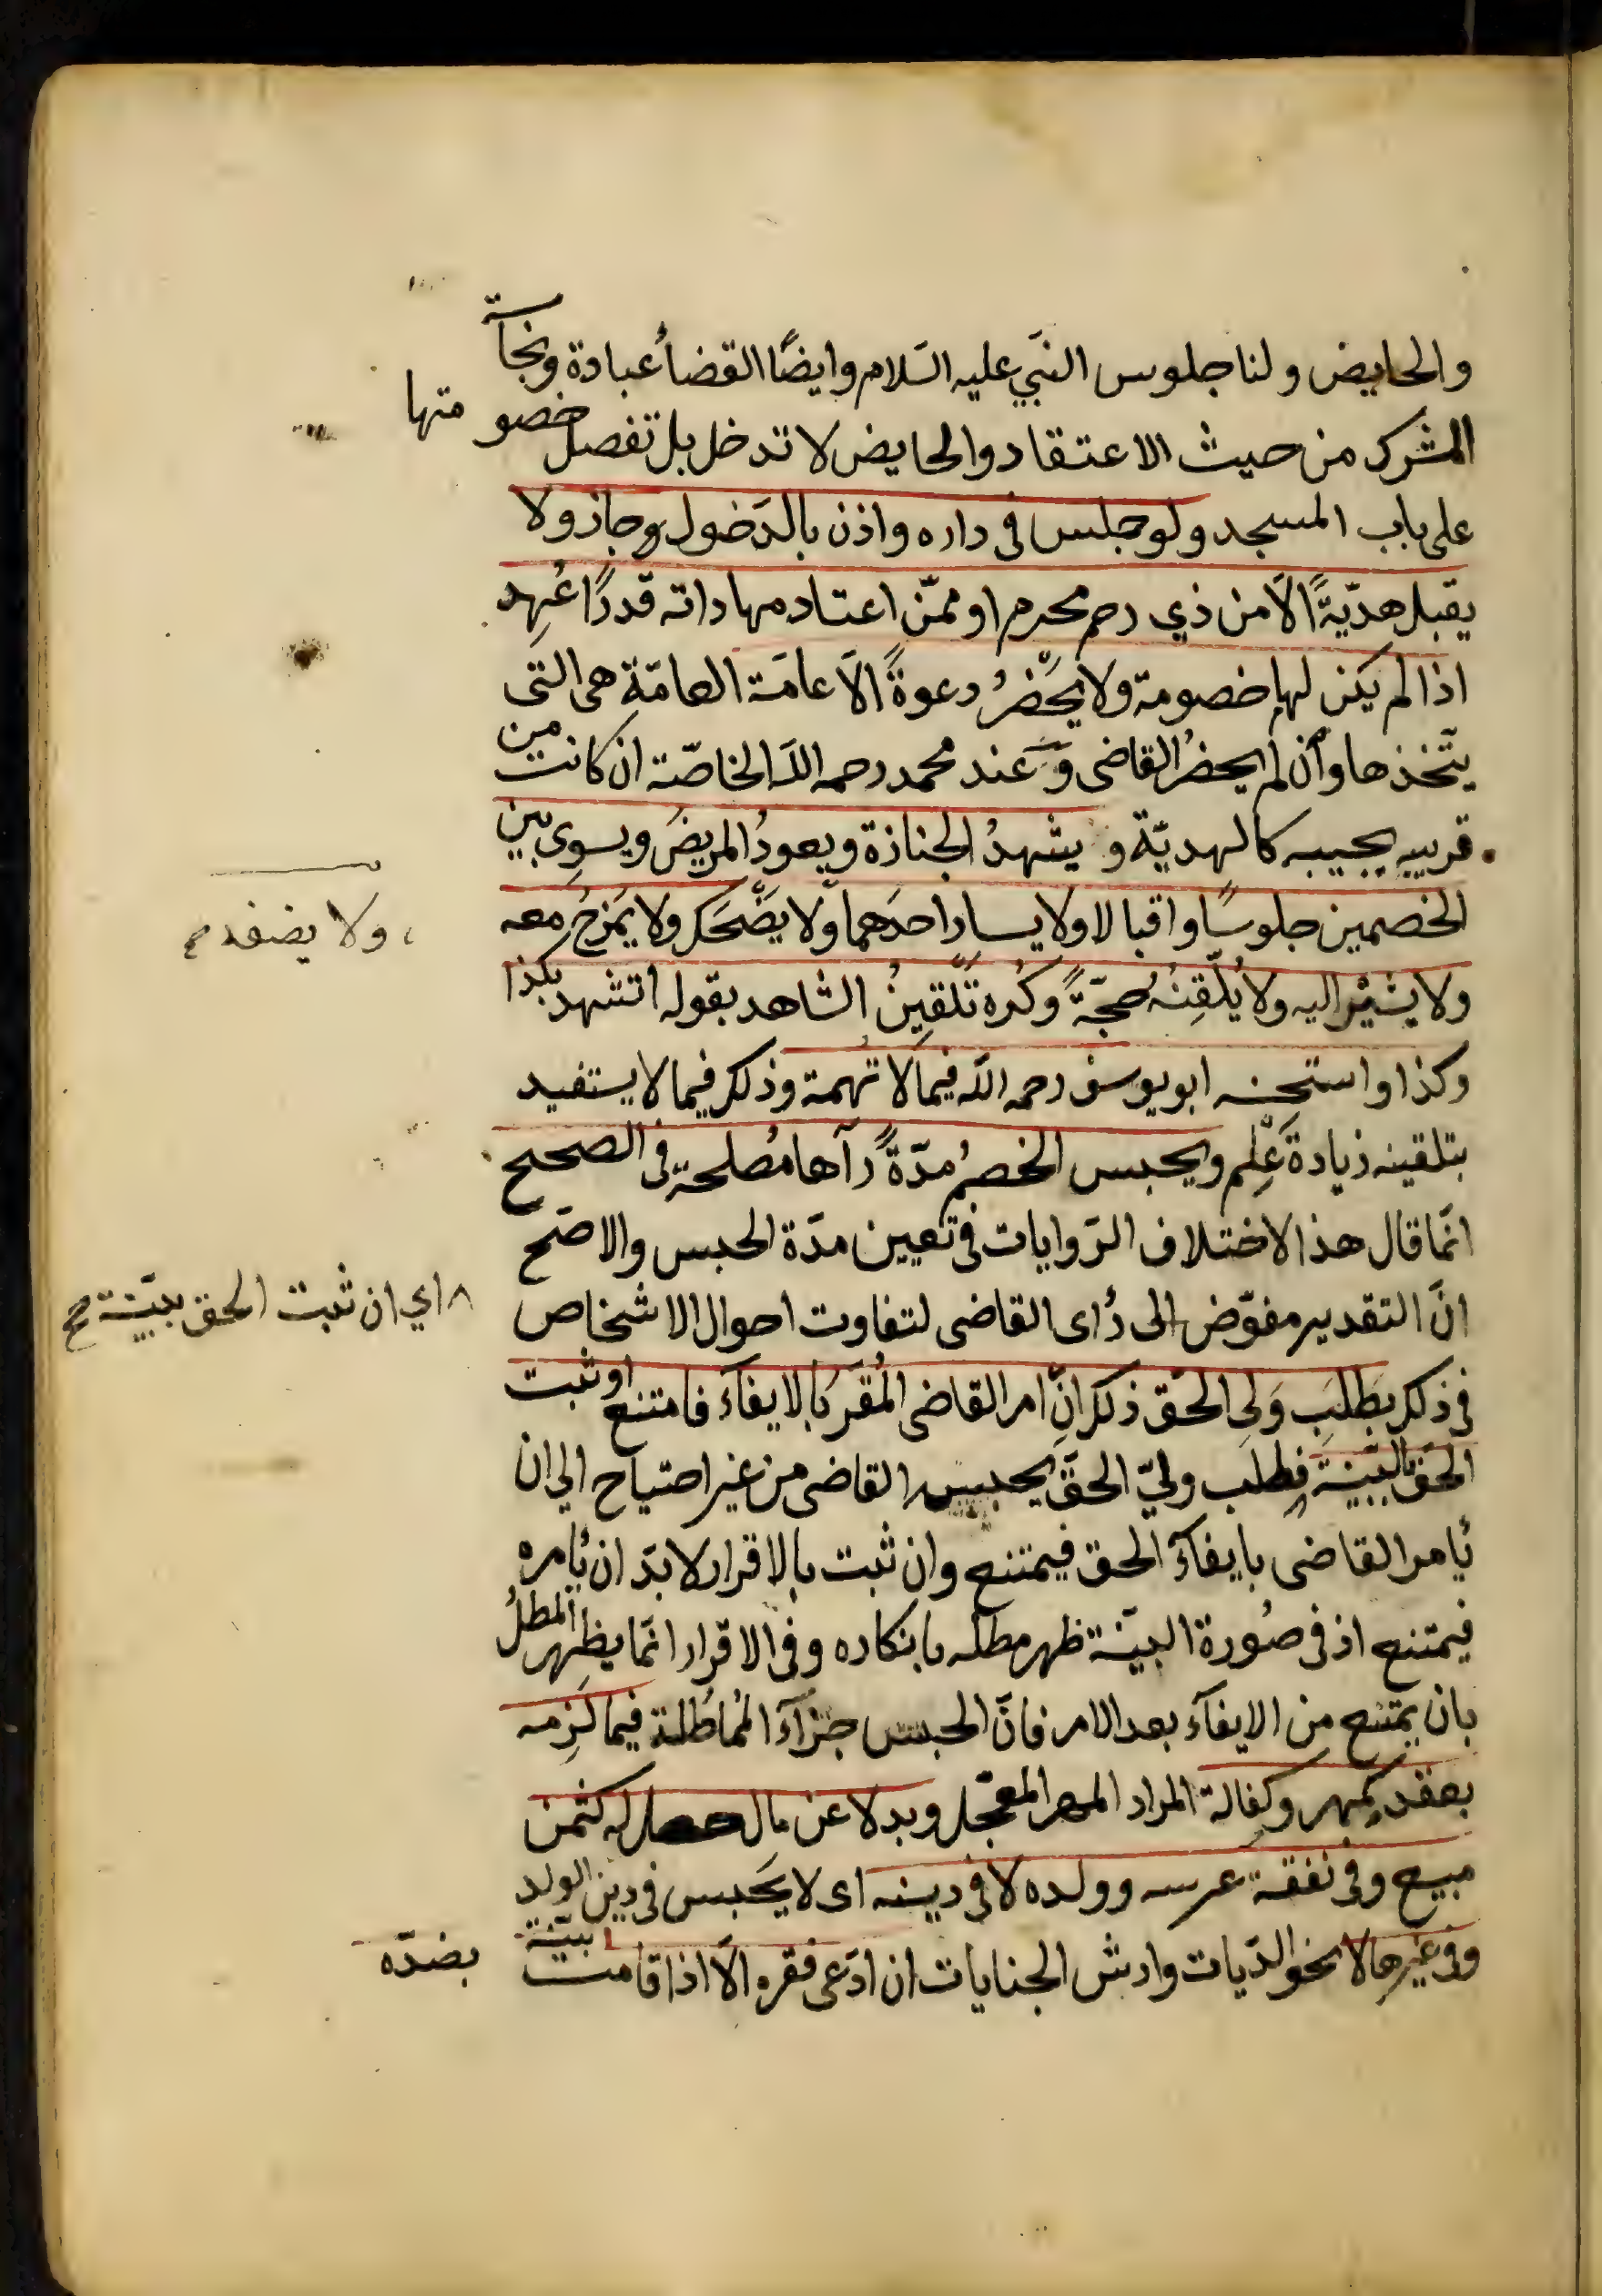 والحايض ولنا جلوس النبّي عليه السّلام وايضًا القضأ عبادة ونجاسة
المشرك من حيث الاعتقاد والحايض لا تدخل بل تفصل خصو متها
على باب المسجد ولو جلس فى داره واذن بالدّخول وجاز ولا
يقبل هديّةً الاّ من ذي رحم محرم او ممّن اعتاد مهاداته قدرًا عُهِد
اذا لم يكن لهما خصومة ولا يَحْضُرُ دعوةً الاّ عامّة العامّةِ هى التى
يتّخذها وأن لم يحضرُ القاضى وَ عند محمد رحمه اللّه الخاصّة ان كانت من
قريبه يجيبه كالهديّة و يشهدُ الجنازة ويعودُ المريضَ ويسوى بين
الخصمين جلوسًا واقبالا ولا يسارّ احدَهما ولا يَضْحَك ولا يَمزحُ معه
ولا يضفه
ولا يشيْر اليه ولا يُلَقِنُه حجّةً وكُره تَلْقِينُ الشاهد بقوله اتشهد بكذا
وكذا واستحسنه ابو يوسف رحمه اللّه فيما لا تهمة وذلك فيما لا يستفيد
بتلقينه زيادة عِلْم ويحبس الخصمُ مدّةً رآها مُصلحة فى الصحيح
انّما قال هذا الاختلاف الرّوايات فى تعيين مدّة الحبس والاصّح
انّ التقدير مفوّض الى رُاى القاضى لتفاوت احوال الاشخاص
اي ان ثبت الحق ببيّنة صح
فى ذلك بطَلَبِ وَلىِ الحَق ذلك انِّ امر القاضى المُقَرّ بالايفآء فامتنع او ثبت
الحَق بالبَيّنة فطلب وليّ الحَقّ يحبس القاضى من غير احتياح الي ان
يُامر القاضى بايفآء الحق فيمتنع وان ثبت بالاقرار لا بدّ ان يُامره
فيمتنع اذ فى صُورة البيّنة ظهر مطله بانكاره وفى الاقرار انّما يظهر المطلُ
بان يمتنع من الايفآء بعد الامر فانّ الحبس جزآء المُماطلة فيما لَزِمه
بعقد كمهر وكفالة المراد المهر المعجّل وبدلا عن مال حصل له كثمن
مبيع وفى نفقة عرسه وولده لا فى دينه اى لا يَحبس فى دين الولد
وفى غيرها لا نحو الدّيات وارش الجنايات ان ادّعى فقره الاّ اذا قامت بيّنة بضدّه